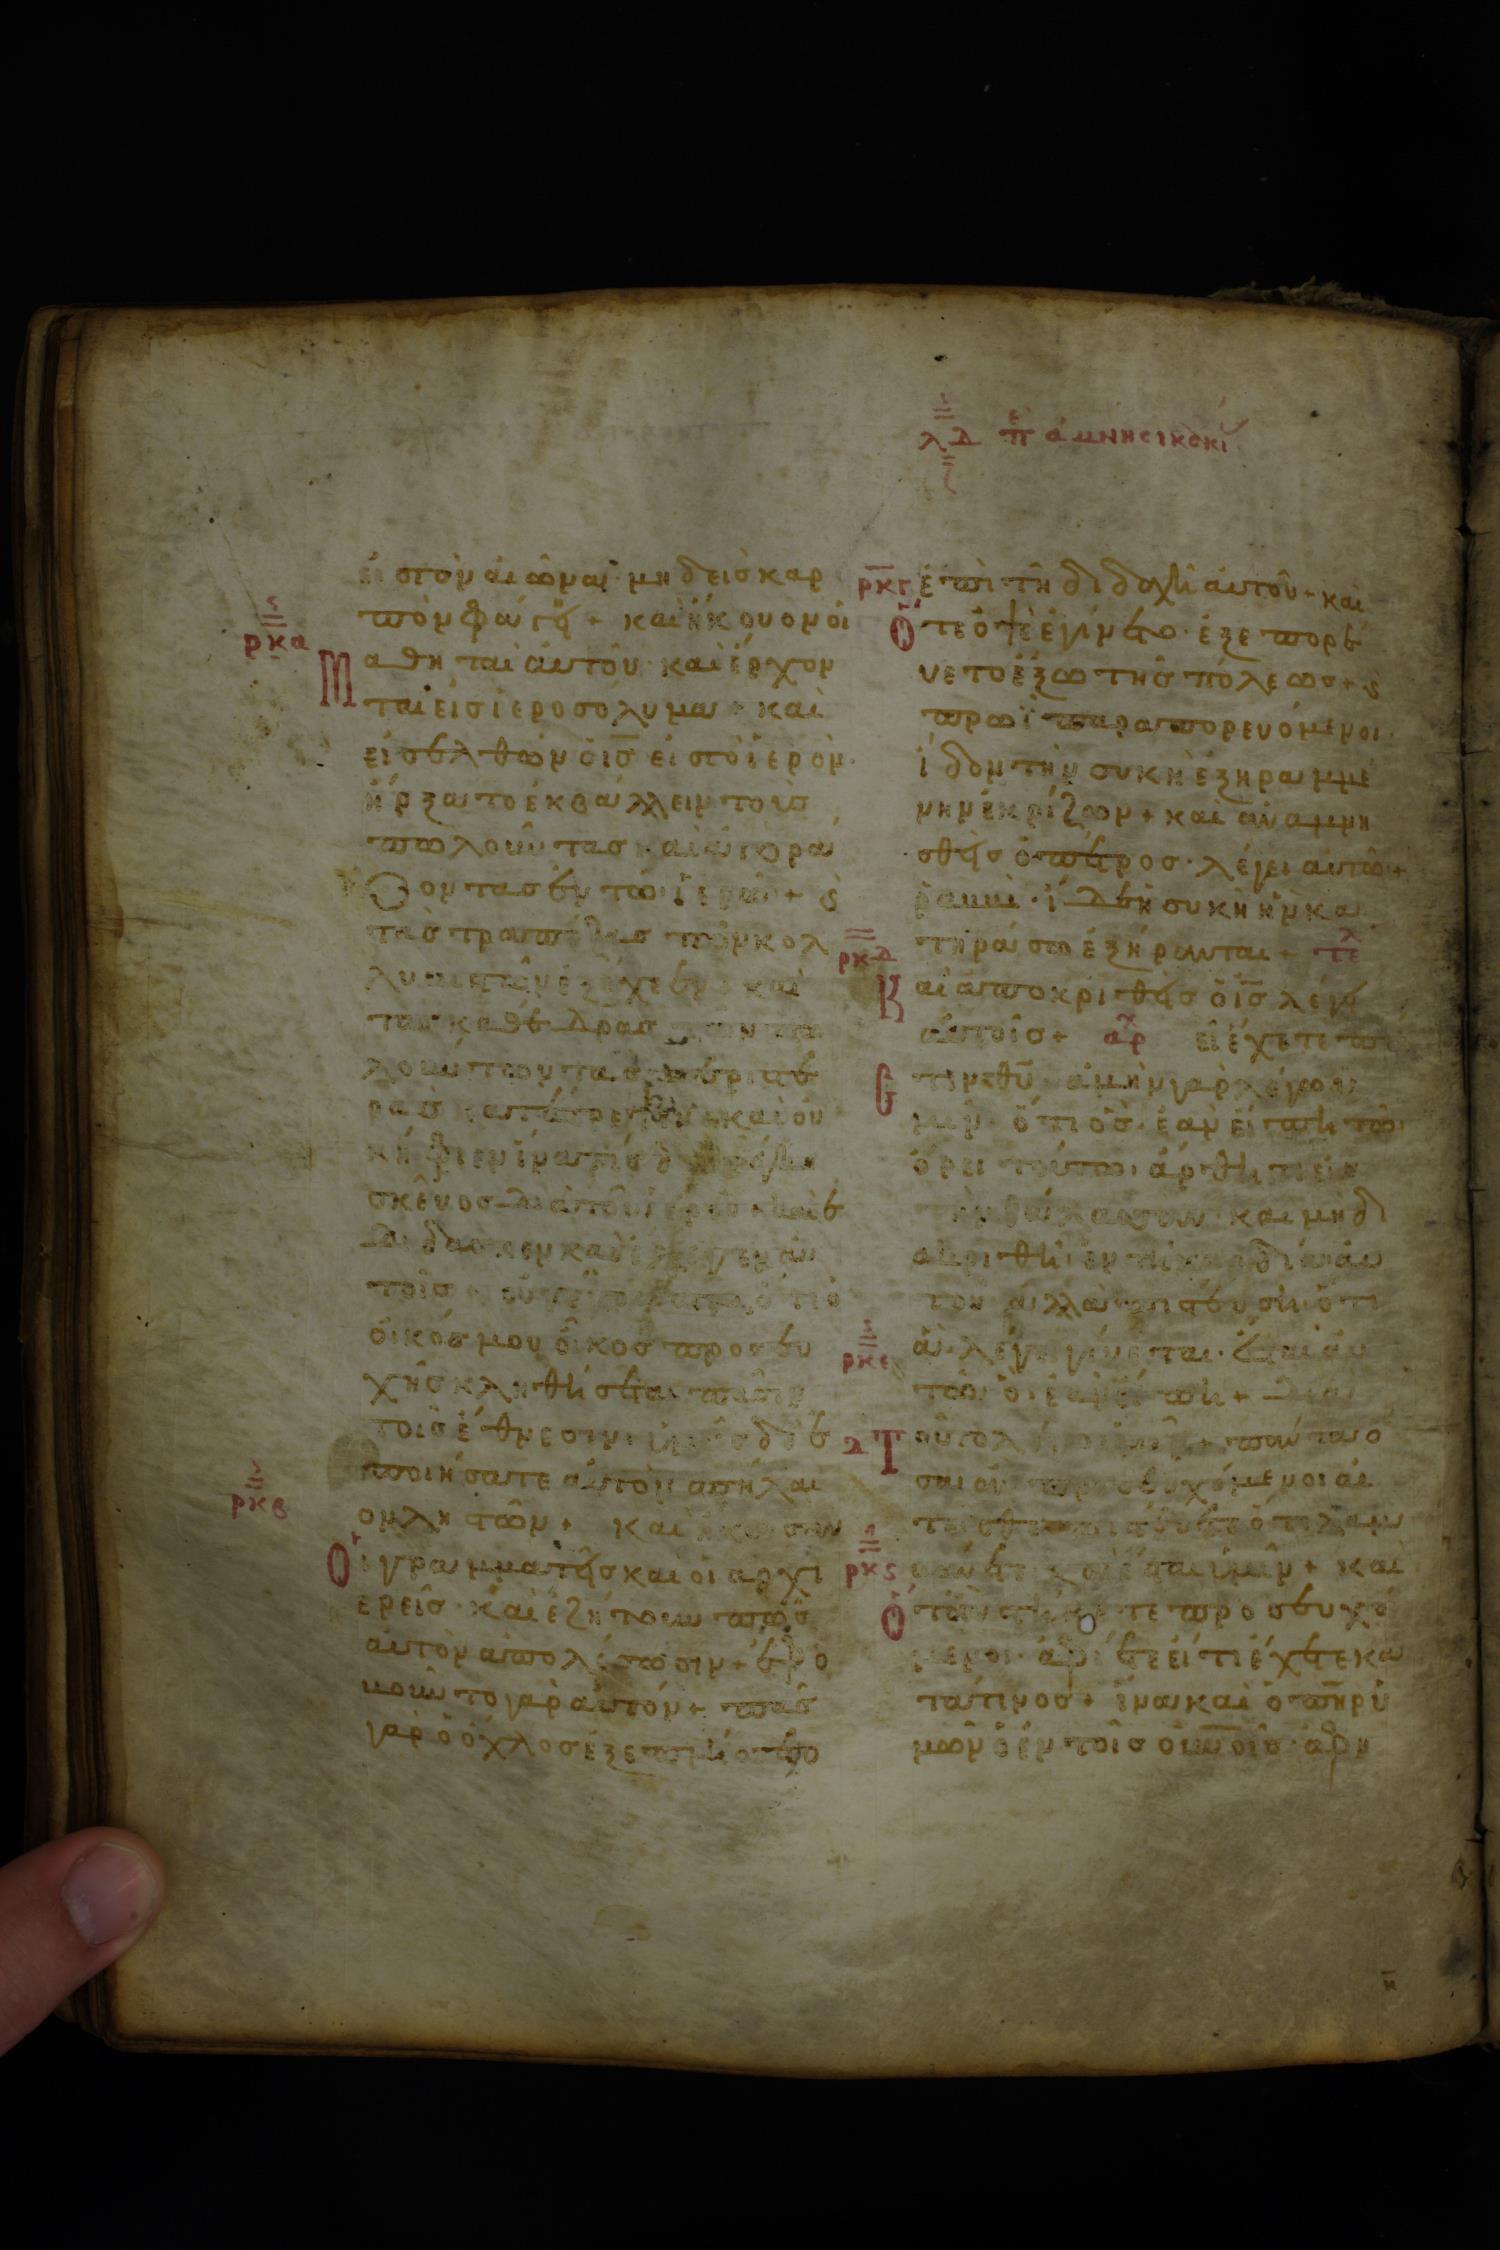 λδ πε ἀμνησικακί
εἰς τὸν αἰῶναι· μηδεὶς καρ
πὸν φάγῃ + καὶ ἤκουον οἱ
ρκα
μαθηταὶ αὐτοῦ· καὶ ἔρχον
ται εἰς ἱεροσόλυμα + καὶ
εἰσελθὼν ὁ ις εἰς τὸ ἱερὸν·
ἤρξατο ἐκβάλλειν τοὺς
πωλοῦντας καὶ ἀγορά
ζοντας ἐν τῷ ἱερῷ + ϗ
τὰς τραπέζας τῶν κολ
λυβιστῶν ἐξέχεεν καὶ
τὰς καθέδρας τῶν πω
λούντων τὰς περιστε
ρὰς κατέστρεψεν + καὶ οὐ
κ ἤφιεν ἵνα τίς δ
σκεῦος διὰ τοῦ ἱεροῦ + καὶ ἐ
δίδασκεν καὶ ἔλεγεν αὐ
τοῖς ὅτι ὁ
οἶκός μου οἶκος προσευ
χῆς κληθήσεται πᾶσιν
τοῖς ἔθνεσιν· ὑμεῖς δὲ ἐ
ποιήσατε αὐτὸν σπήλαι
ρκβ
ον ληστῶν + καὶ ἤκουσαν
Οἱ γραμματεῖς καὶ οἱ ἀρχι
ερεῖς· καὶ ἐζήτουν πῶς
αὐτὸν ἀπολέσωσιν + ἐφο
βοῦντο γὰρ αὐτόν + πᾶς
γὰρ ὁ ὄχλος ἐξεπλήσσετο
ρκγ ἐπὶ τῇ διδαχῇ αὐτοῦ + καὶ
Ὅτε ὀψὲ ἐγίνετο· ἐξεπορεύ
νετο ἔξω τῆς πόλεως + ϗ
πρωῒ παραπορευόμενοι·
ἴδον τὴν συκῆ ἐξηραμμέ
νην ἐκ ριζῶν + καὶ ἀναμνη
σθεὶς ὁ πέτρος· λέγει αὐτῷ +
ῥαββὶ· ἴδε ἡ συκῆ ἣν κα
τηράσω ἐξήρανται + τελ
ρκδ
Καὶ ἀποκριθεὶς ὁ ις λέγει
αὐτοῖς + αρχ εἰ ἔχετε πί
στιν θυ ἀμὴν γὰρ λέγω ὑ
μῖν· ὅτι ὃς ἐὰν εἴπῃ τῷ
ὄρει τούτῳ· ἄρθητι εἰς
τὴν θάλασσαν καὶ μὴ δι
ακριθῇ ἐν τῇ καρδίᾳ αὐ
τοῦ ἀλλὰ πιστεύσῃ ὅτι
ρκε ἃ λέγει γίνεται· ἔσται αὐ
τῷ ὃ ἐὰν εἴπῃ + διὰ
Τοῦτο λέγω ὑμῖν + πάντα ὅ
σα ἂν προσευχόμενοι αἰ
τεῖσθε πιστεύετε ὅτι λαμ
ρκς βάνετε καὶ ἔσται ὑμῖν + καὶ
Ὅταν στήκετε προσευχό
μενοι· ἀφίετε εἴ τι ἔχετε κα
τά τινος + ἵνα καὶ ὁ πηρ ὑ
μῶν ὁ ἐν τοῖς οὐνοῖς· ἀφῇ